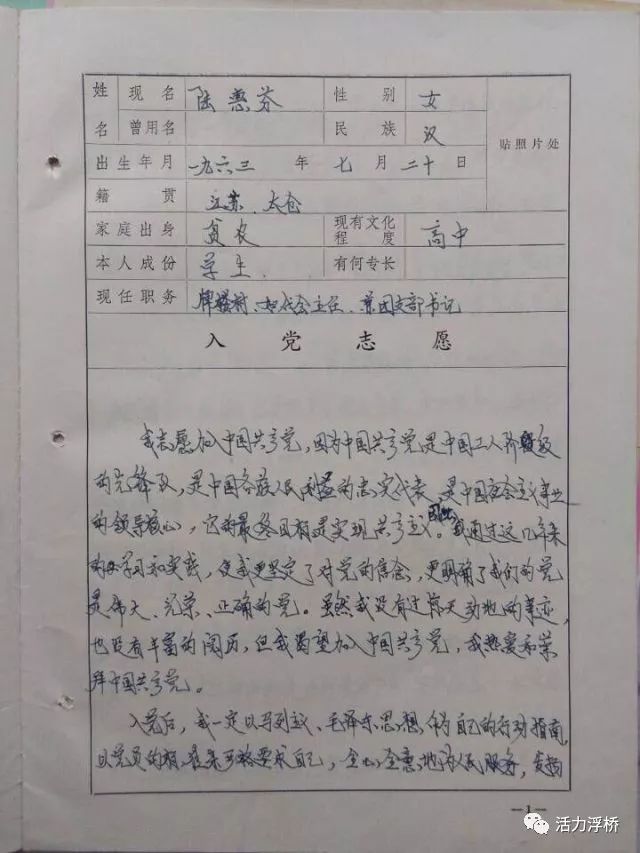 姓名 现名 陆惠芬 性别 女
曾用名 民族 汉 贴照片处
出生年月 一九六三年七月二十日
籍贯 江苏、太仓
家庭出身 贫农 现有文化程度 高中
本人成份 学生. 有何专长
现任职务 牌楼村、妇代会主任、兼团支部书记
入党志愿
我志愿加入中国共产党,因为中国共产党是中国工人阶级
的先锋队,是中国各族人民利益的忠实代表,是中国社会主义事业
的领导核心,它的最终目标是实现共产主义。因此我通过这几年来
的学习和实践,使我更坚定了对党的信念,更明确了我们的党
是伟大、光荣、正确的党。虽然我没有过惊天动地的事迹,
也没有丰富的阅历,但我渴望加入中国共产党,我热爱和崇
拜中国共产党。
入党后,我一定以马列主义、毛泽东思想,作为自己的行动指南,
以党员的标准来严格要求自己,全心全意地为人民服务,发扬
—1—
活力浮桥